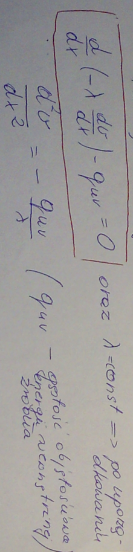 d/dx (-λ dv/dx) - quv = 0 oraz λ = const => po uporząd-
dkowaniu
d²v/dx² = - quv/λ (quv -
objętościowa
energii wewnętrznej)
źródła